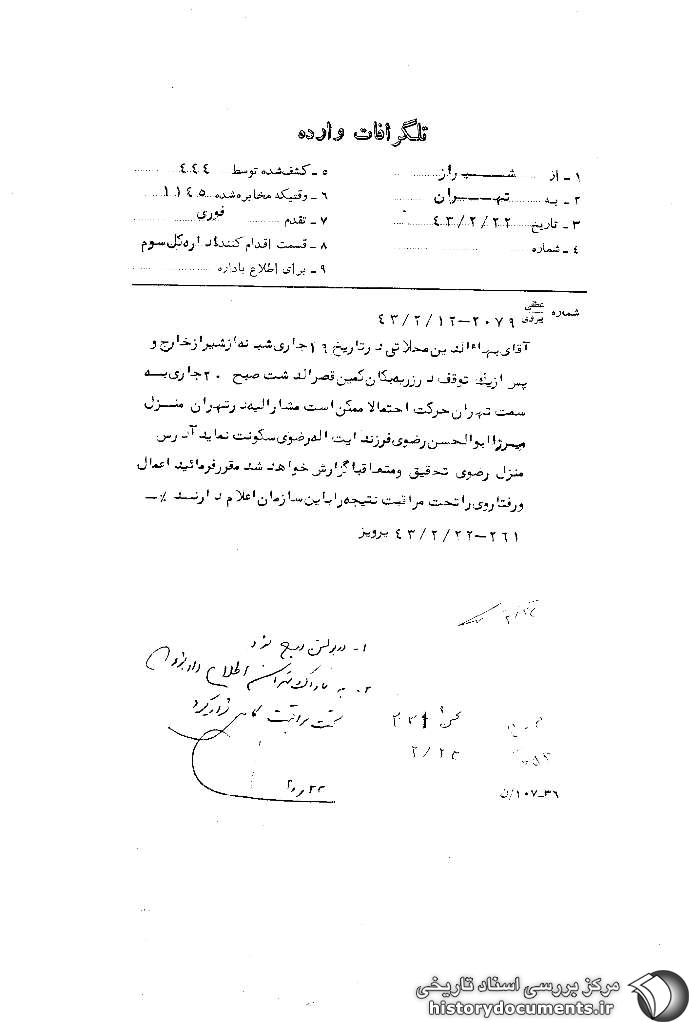 تلگرافات وارده
۱ - از شیراز
۲ - به تهران
۳ - تاریخ ۴۳/۲/۲۲
۴ - شماره
۵ - کشف شده توسط ۴۴۴
۶ - وقتیکه مخابره شده ۱۱۴۵
۷ - تقدم فوری
۸ - قسمت اقدام کننده اداره کل سوم
۹ - برای اطلاع باداره
شماره ۲۰۷۹-۴۳/۲/۱۲
آقای بهاءالدین محلاتی درتاریخ ۱۹ جاری شبانه ازشیراز خارج و
پس ازیك توقف درزرهیكان كمین قصرالدشت صبح ۲۰ جاری به
سمت تهران حرکت احتمالا ممکن است مشارالیه درتهران منزل
میرزا ابوالحسن رضوی فرزند ایت اله رضوی سکونت نماید آدرس
منزل رضوی تحقیق ومتعاقبا گزارش خواهد شد مقررفرمائید اعمال
ورفتاروی راتحت مراقبت نتیجه رابا این سازمان اعلام دارند ٪ــ
۲۶۱-۴۳/۲/۲۲ پرویز
۱-
۲- به ساواک تهران اطلاع داده شود
تحت مراقبت کامل قرار گیرد
۲۳۱
۲/۲۳
۳۶-۱۰۷/ن
مرکز بررسی اسناد تاریخی
historydocuments.ir